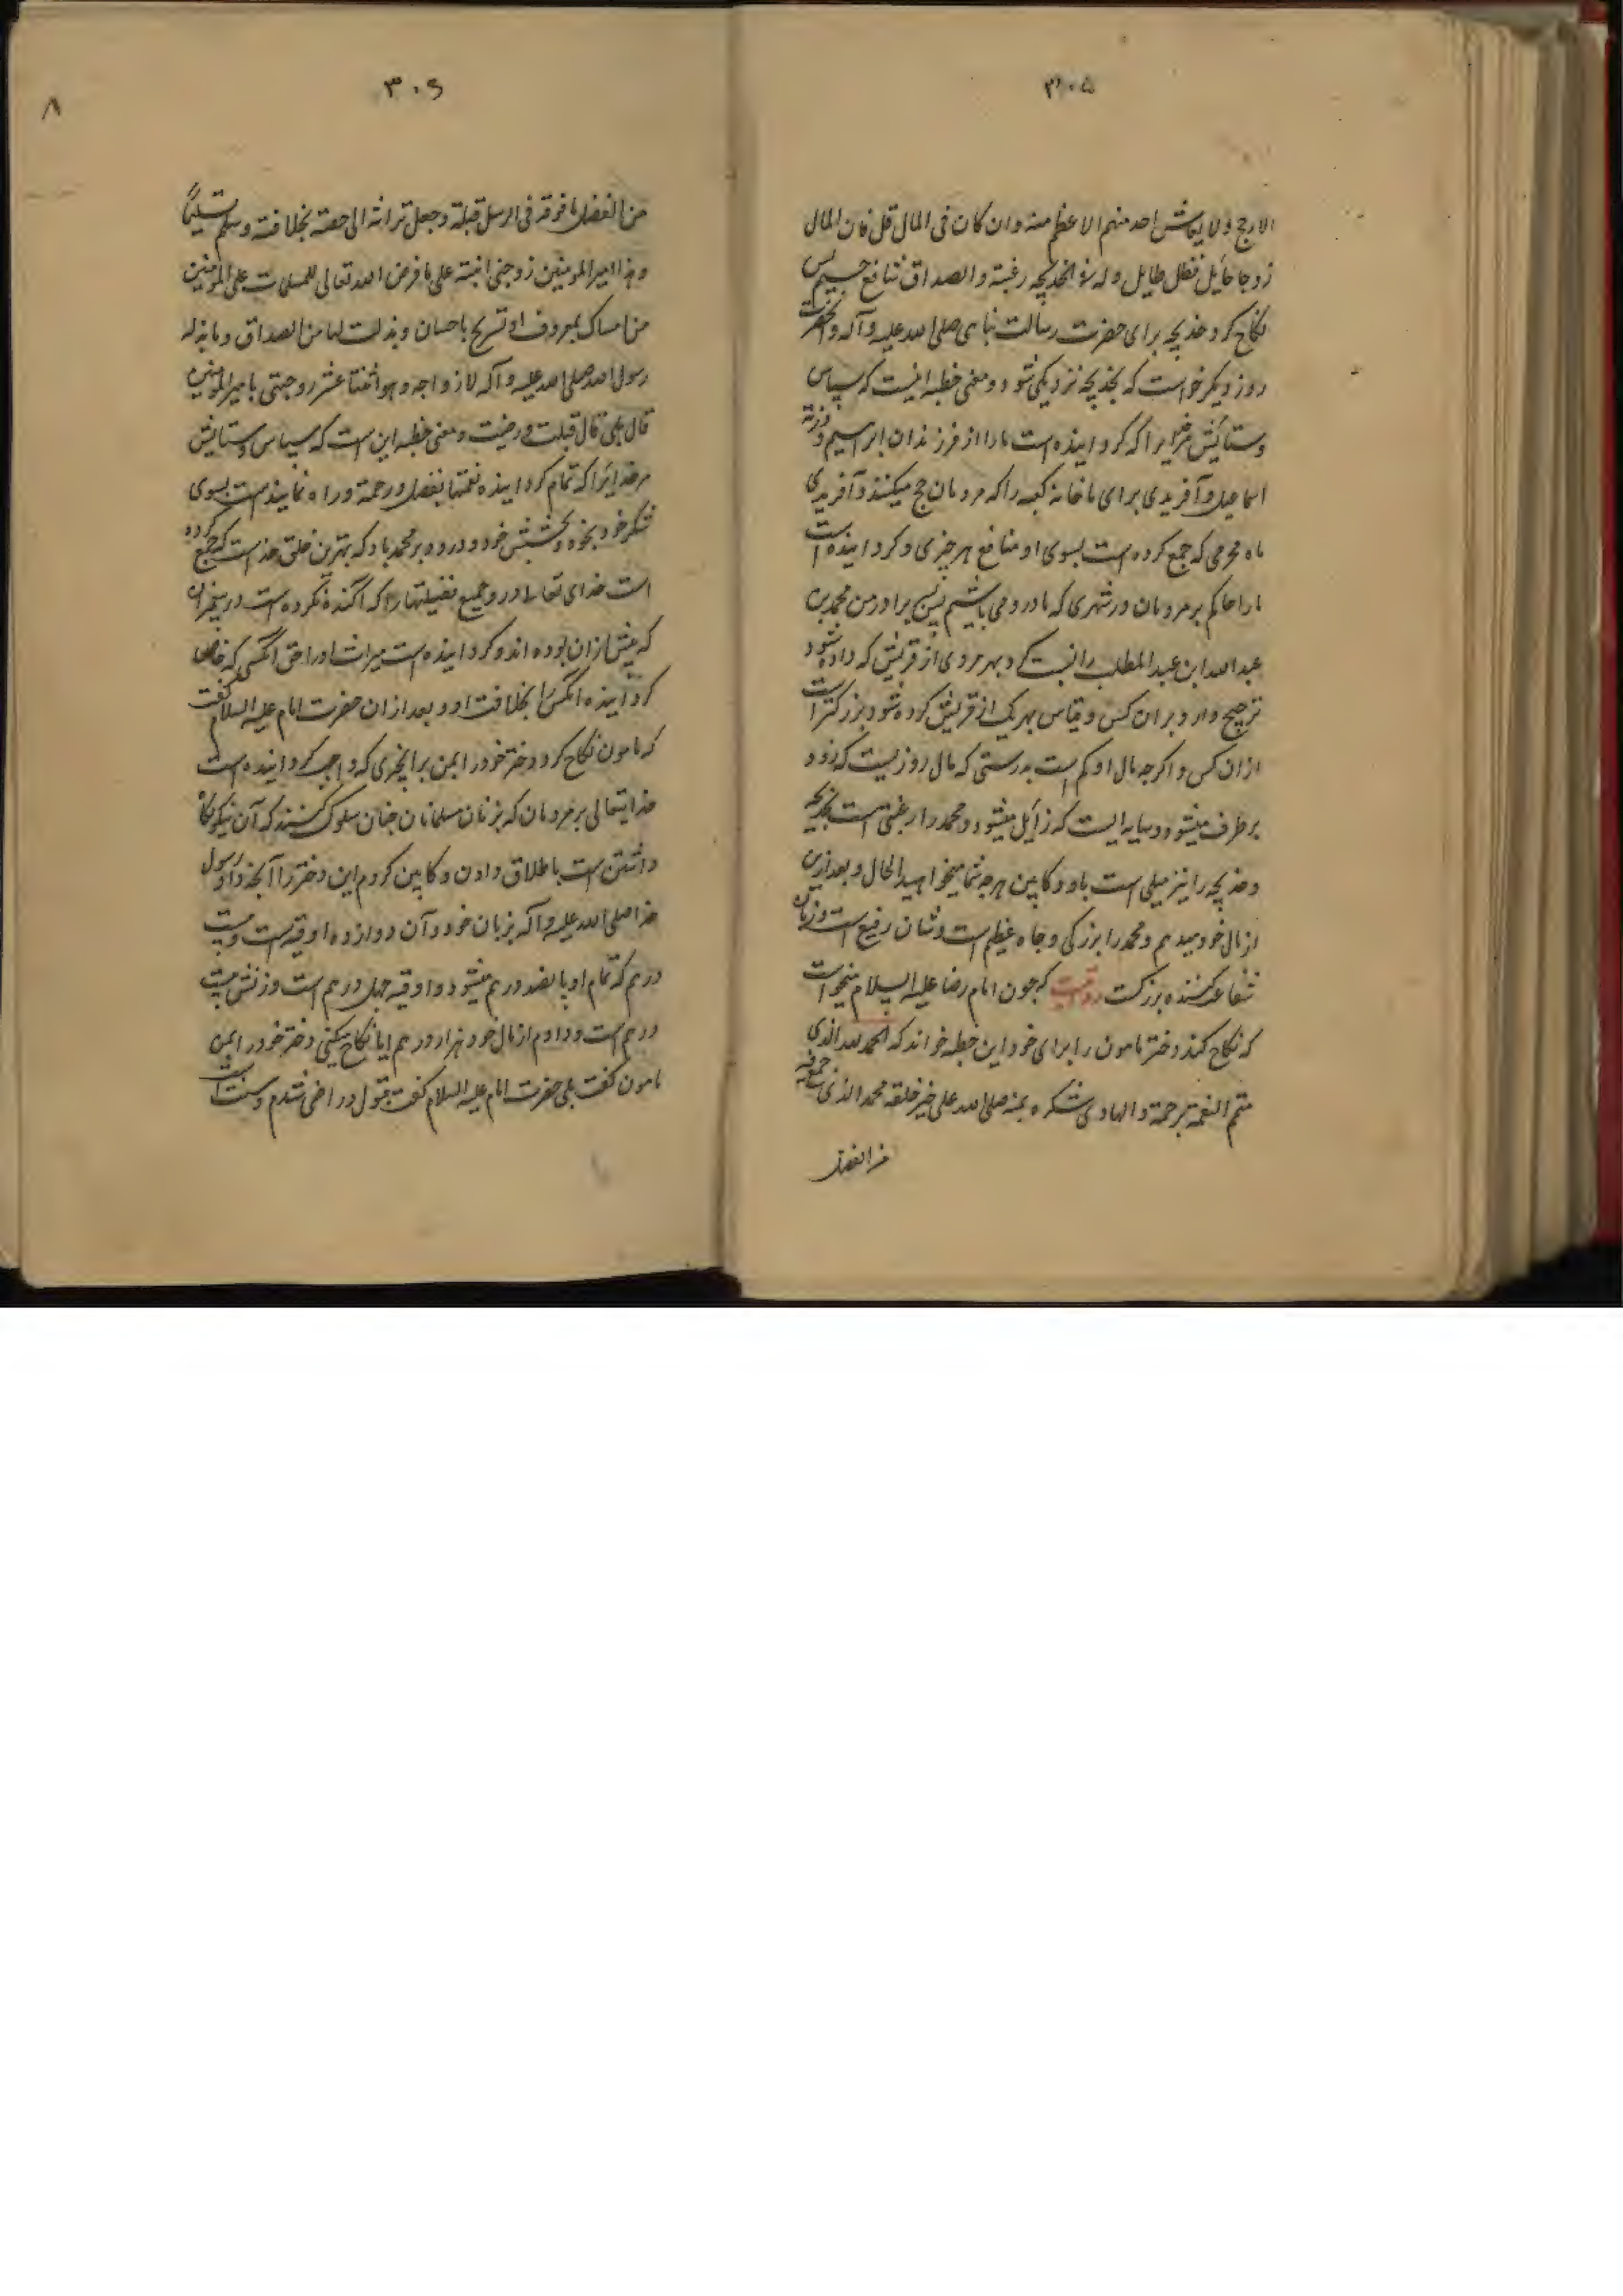 ۳۰۵
الارجح ولا یقاس احد منهم الا عظم منه وان کان فی المال قل فان المال
زوجا حایل فظل طایل وله فی الخدیجه رغبته والصداق
نکاح کرد خدیجه برای حضرت رسالت پناهی صلی الله علیه وآله و آنحضرت
روز دیگر خواست که بخدیجه نزدیکی شود و معنی خطبه اینست که سپاس
وستایش مرخدایرا که کرداینده است مارا از فرزندان ابراهیم و ذریة
اسماعیل وآفریدی برای ما خانه کعبه را که مردمان حج میکنند وآفریدی
ماه محرمی که جمع کرده است بسوی او منافع هر چیزی و کرداینده است
مارا حاکم بر مردمان در شهری که ما درو می باشیم پس برادر من محمد بن
عبدالله ابن عبدالمطلب را نیست که بهر مردی از قریش که داده شود
ترجیح دارد بران کس و قیاس بهر یک از قریش کرده شود بزرکتر است
ازان کس و اکرچه مال او کم است بدرستی که مال روزیست که زود
برطرف میشود و سایه ایست که زایل میشود و محمد را رغبتی است بخدیجه
وخدیجه را نیز میلی است باو و کابین هرچه شما میخواهید الحال و بعد ازین
از مال خود میدهم و محمد را بزرکی و جاه عظیم است و شان رفیع است و زبان
شفاعت کننده بزرکست روایت که چون امام رضا علیه السلام میخواست
که نکاح کند دختر مامون را برای خود این خطبه خواند که الحمد لله الذی
متم النعمة برحمة والهادی شکره بمنه صلی الله علی خیر خلقه محمد الذی جمع فیه
من الفضل
۳۰۶
۸
من الفضل ما فرقه فی الرسل قبلة وجعل تراثه الی خصه بخلافته وسلم تسلیما
وهذا امیرالمومنین زوجنی ابنته علی ما فرض الله تعالی للمسلمات علی المومنین
من امساک بمعروف او تسریح باحسان وبذلت لها من الصداق وما بذله
رسول الله صلی الله علیه وآله لازواجه وهو اثنتا عشر زوجتی یا امیرالمومنین
قال بلی قال قبلت ورضیت و معنی خطبه این است که سپاس وستایش
مرخدایرا که تمام کرداینده نعمتها بفضل ورحمة وراه نماینده است بسوی
شکر خود بخود و بخشش خود و درود بر محمد باد که بهترین خلق خداست که جمع کرده
است خدای تعالی درو جمیع فضیلتها را که اکنده نکرده است در پیغمبران
که پیش ازان بوده اند و کرداینده است میراث اورا حق انکس که خاص
کرداینده انکس را بخلافت او و بعد ازان حضرت امام علیه السلام گفت
که مامون نکاح کرد دختر خود را بمن برانچیزی که واجب کرداینده است
خدایتعالی بر مردمان که بزنان مسلمانان چنان سلوک کنند که آن نیکو نکاه
داشتن است یا طلاق دادن و کابین کردم این دختر را آنچه داد رسول
خدا صلی الله علیه وآله بزنان خود و آن دوازده اوقیه است و بیست
درهم که تمام او پانصد درهم میشود و اوقیه چهل درهم است و زنش بیست
درهم است و دادم از مال خود هزار درهم ایا نکاح میکنی دختر خود را بمن
مامون گفت بلی حضرت امام علیه السلام گفت قبول و راضی شدم و سنت است